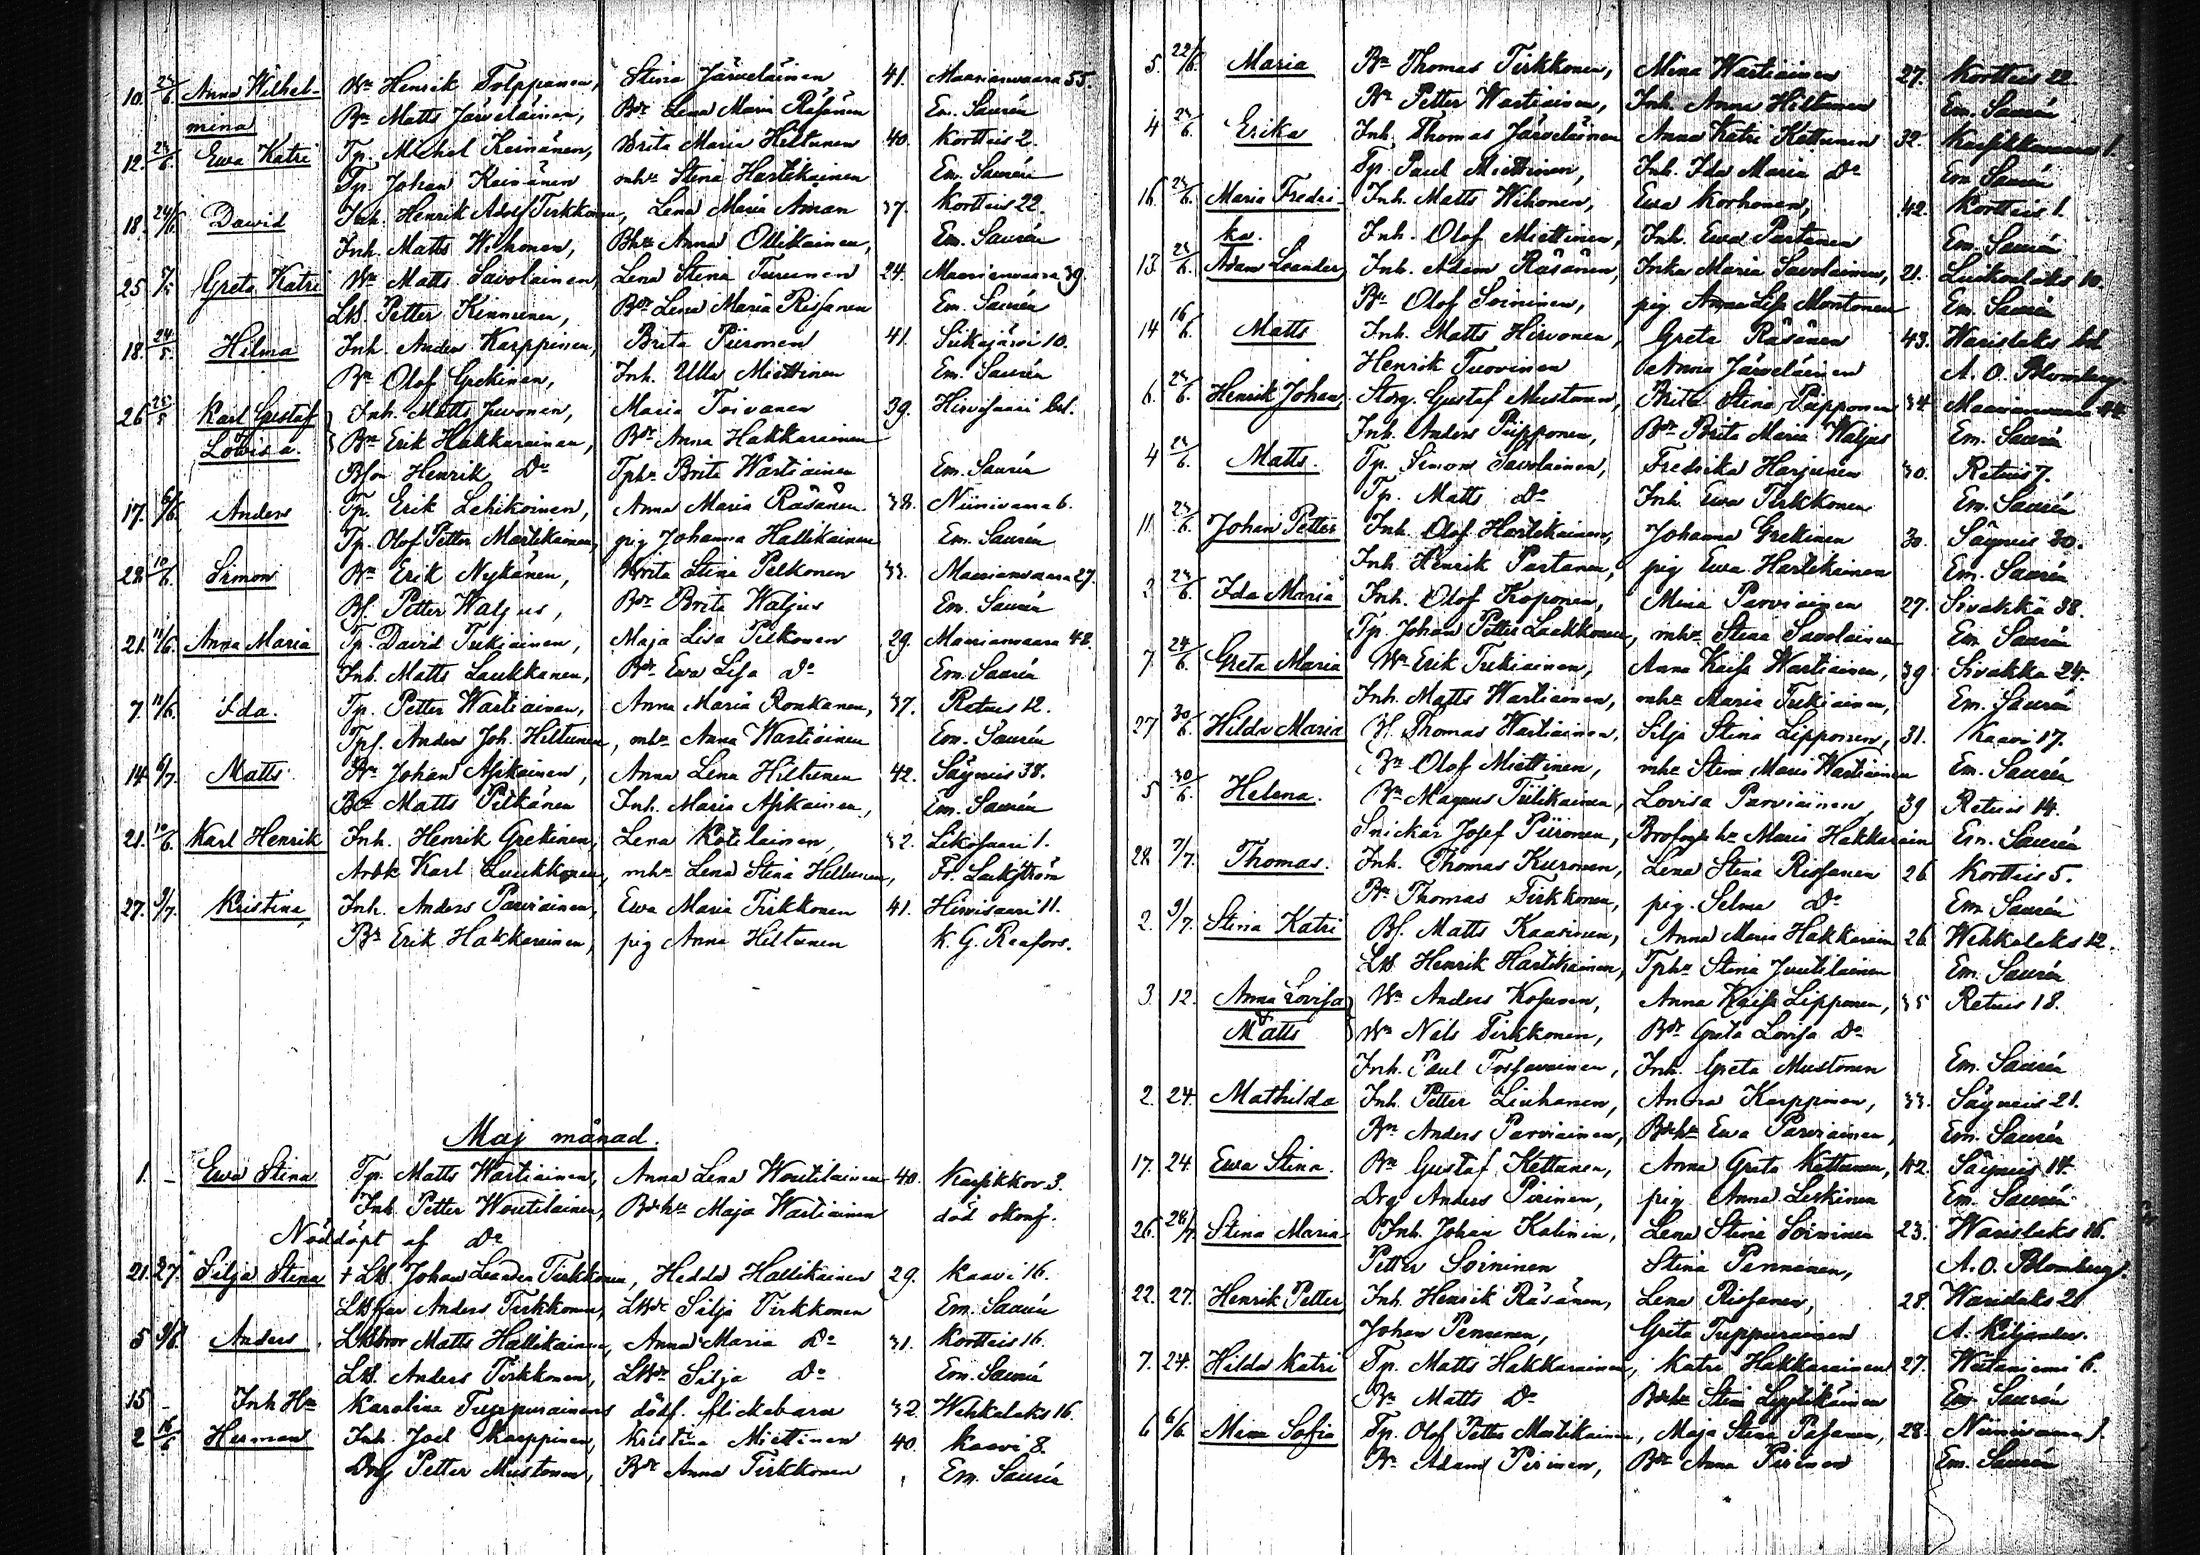 10. 24/6 Anna Wilhel- Bn Henrik Tolppanen, Stina Järveläinen 41. Maarianvaara 55.
mina Bn Matts Järveläinen, Bdr Lena Maria Räsänen Em. Saurén
12. 24/6. Ewa Katri Tp. Michel Keinänen, Brita Maria Hiltunen 40. Kortteis 2.
Tp. Johan Keinänen mhr Stina Hartikainen Em. Saurén
18. 24/6 David Inh. Henrik Adolf Tirkkonen, Lena Maria Åman 37. Kortteis 22.
Inh. Matts Wihonen, Bhr Anna Ollikainen, Em. Saurén
25 Greta Katri Wn Matts Savolainen, Lena Stina Turunen 24. Maarianvaara 39.
Lbd. Petter Kinnunen, Bdr Lena Maria Rissanen Em. Saurén
18. 24/5. Hilma Inh. Anders Karppinen, Brita Piironen 41. Siikajärvi 10.
Bn Olof Grekinen, Inh. Ulla Miettinen Em. Saurén
26 Karl Gustaf Inh. Matts Juvonen, Maria Toivanen 39. Hirvisaari bel.
Lovisa. Bn Erik Hakkarainen, Bdr Anna Hakkarainen
Bson Henrik Do Tphr Brita Wartiainen Em. Saurén
17. 6/6. Anders Tp. Erik Lehikoinen, Anna Maria Räsänen 38. Niinivaara 6.
Tp. Olof Petter Martikainen, pig Johanna Hallikainen Em. Saurén
28. 10/6. Simon Bn Erik Nykänen, Brita Stina Pelkonen 33. Maarianvaara 27.
Bf. Petter Waljus, Bdr Brita Waljus Em. Saurén
21. 11/6. Anna Maria Tp. David Tukiainen, Maja Lisa Pelkonen 29. Maarianvaara 42.
Inh. Matts Laukkanen, Bdr Ewa Lisa Do Em. Saurén
7. 11/6. Ida. Tp. Petter Wartiainen, Anna Maria Ronkanen, 37. Retuis 12.
Tpf. Anders Joh. Hiltunen, mhr Anna Wartiainen Em. Saurén
14. 6/7. Matts Bn Johan Asikainen, Anna Lena Hiltunen 42. Säyneis 38.
Bn Matts Pitkänen Inh. Maria Asikainen, Em. Saurén
21. 10/6. Karl Henrik Inh. Henrik Grekinen, Lena Kotilainen, 32. Litkosaari 1.
Arbk Karl Luukkonen, mhr Lena Stina Hiltunen,
27. 9/7. Kristina, Inh. Anders Parviainen, Ewa Maria Tirkkonen 41. Hirvisaari 11.
Bn Erik Hakkarainen, pig Anna Hiltunen K. G. Raafors.
Maj månad.
1. – Ewa Stina Tp. Matts Wartiainen, Anna Lena Woutilainen 40. Karsikkov 3.
Inh. Petter Woutilainen, Bdhr Maja Wartiainen död okonf.
Nöddöpt af Do
21. 27. Silja Stina + Lbd. Johan Leander Tirkkonen, Hedda Hallikainen 29. Kaavi 16.
Lbdfar Anders Tirkkonen, Lbdr Silja Tirkkonen Em. Saurén
5 9/6 Anders. Lbdbror Matts Hallikainen, Anna Maria Do 31. Kortteis 16.
Lbd. Anders Tirkkonen, Lbdr Silja Do Em. Saurén
15 – Inh Hn Karolina Tuppurainens dödf. flickebarn 32. Wehkalaks 16.
2 16/6 Herman Inh. Joel Karppinen, Kristina Miettinen 40. Kaavi 8.
Drg Petter Mustonen, Bdr Anna Tirkkonen Em. Saurén
5. 22/6. Maria Bn Thomas Tirkkonen, Mina Wartiainen 27. Kortteis 22.
Bn Petter Wartiainen, Inh. Anna Hiltunen Em. Saurén
4 24/6. Erika Inh. Thomas Järveläinen Anna Katri Kettunen 32. Karsikkovaara 1.
Tp. Paul Miettinen, Inh. Ida Maria Do Em. Saurén
16. 24/6. Maria Fredri- Inh. Matts Wihonen, Ewa Korhonen, 42. Kortteis 1.
ka. Inh. Olof Miettinen, Inh. Ewa Partanen Em. Saurén
13. 24/6. Adam Leander Inh. Adam Räsänen, Inka Maria Savolainen, 21. Luikonlaks 10.
Bn Olof Soininen, pig Anna Lisa Montonen Em. Saurén
14 16/6. Matts Inh. Matts Hirvonen, Greta Räsänen 43. Warislaks bel.
Henrik Tuovinen Anna Järveläinen A. O. Blomberg
6. 24/6. Henrik Johan, Storg. Gustaf Mustonen, Brita Stina Piipponen 34. Maarianvaara 44.
Inh. Anders Piipponen, Bdr Brita Maria Waljus Em. Saurén
4 24/6. Matts. Tp. Simon Savolainen, Fredrika Harjunen 30. Retuis 7.
Tp. Matts Do Inh. Ewa Tirkkonen Em. Saurén
11. 23/6. Johan Petter Inh. Olof Hartikainen, Johanna Grekinen 30. Säyneis 30.
Inh. Henrik Partanen, pig Ewa Hartikainen Em. Saurén
2 24/6. Ida Maria Inh. Olof Koponen, Mina Parviainen 27. Sivakka 38.
Tp. Johan Petter Laakkonen, mhr Stina Savolainen Em. Saurén
7. 24/6. Greta Maria Wn Erik Tukiainen, Anna Kaisa Wartiainen, 39 Sivakka 24.
Inh. Matts Wartiainen, mhr Maria Tukiainen, Em. Saurén
27 30/6. Hilda Maria Bf. Thomas Wartiainen, Silja Stina Lipponen, 31. Kaavi 17.
Bn Olof Miettinen, mhr Stina Maria Wartiainen Em. Saurén
5 30/6. Helena. Bn Magnus Tiilikainen, Lovisa Parviainen, 39 Retuis 14.
Snickar Josef Piironen, Maria Hakkarain Em. Saurén
28. 7/7. Thomas. Inh. Thomas Kuronen, Lena Stina Rissanen 26 Kortteis 5.
Bn Thomas Tirkkonen, pig. Selma Do Em. Saurén
2. 9/7. Stina Katri Bf. Matts Kaasinen, Anna Maria Hakkarain 26. Wehkalaks 12.
Lbd. Henrik Hartikainen, Tphr Stina Juutilainen Em. Saurén
3. 12. Anna Lovisa Wn Anders Kosunen, Anna Kaisa Lipponen, 35 Retuis 18.
& Matts Wn Nils Tirkkonen, Bdr Greta Lovisa Do
Inh. Paul Tossavainen, Inh. Greta Mustonen Em. Saurén
2. 24. Mathilda Inh. Petter Liuhanen, Anna Karppinen, 33. Säyneis 21.
Bn Anders Parviainen, Bdhr Ewa Parviainen, Em. Saurén
17. 24. Ewa Stina. Bn Gustaf Kettunen, Anna Greta Kettunen, 42. Säyneis 14.
Drg Anders Pirinen, pig Anna Leskinen Em. Saurén
26. 28/7 Stina Maria Inh. Johan Kalinin, Lena Stina Soininen 23. Warislaks 16.
Petter Soininen Stina Pennanen, A. O. Blomberg.
22. 27. Henrik Petter Inh. Henrik Räsänen, Lena Rissanen, 28. Warislaks 21
Johan Pennanen, Greta Tuppurainen A. Kiljander.
7. 24. Hilda Katri Tp. Matts Hakkarainen, Katri Hakkarainen 27. Wiitaniemi 6.
Bn Matts Do Bdhr Stina Lyytikäinen Em. Saurén
6 6/6. Mina Sofia Tp. Olof Petter Martikainen, Maja Stina Pasanen, 28. Niinivaara 1.
Bn Adam Pirinen, Bdr Anna Pirinen Em. Saurén